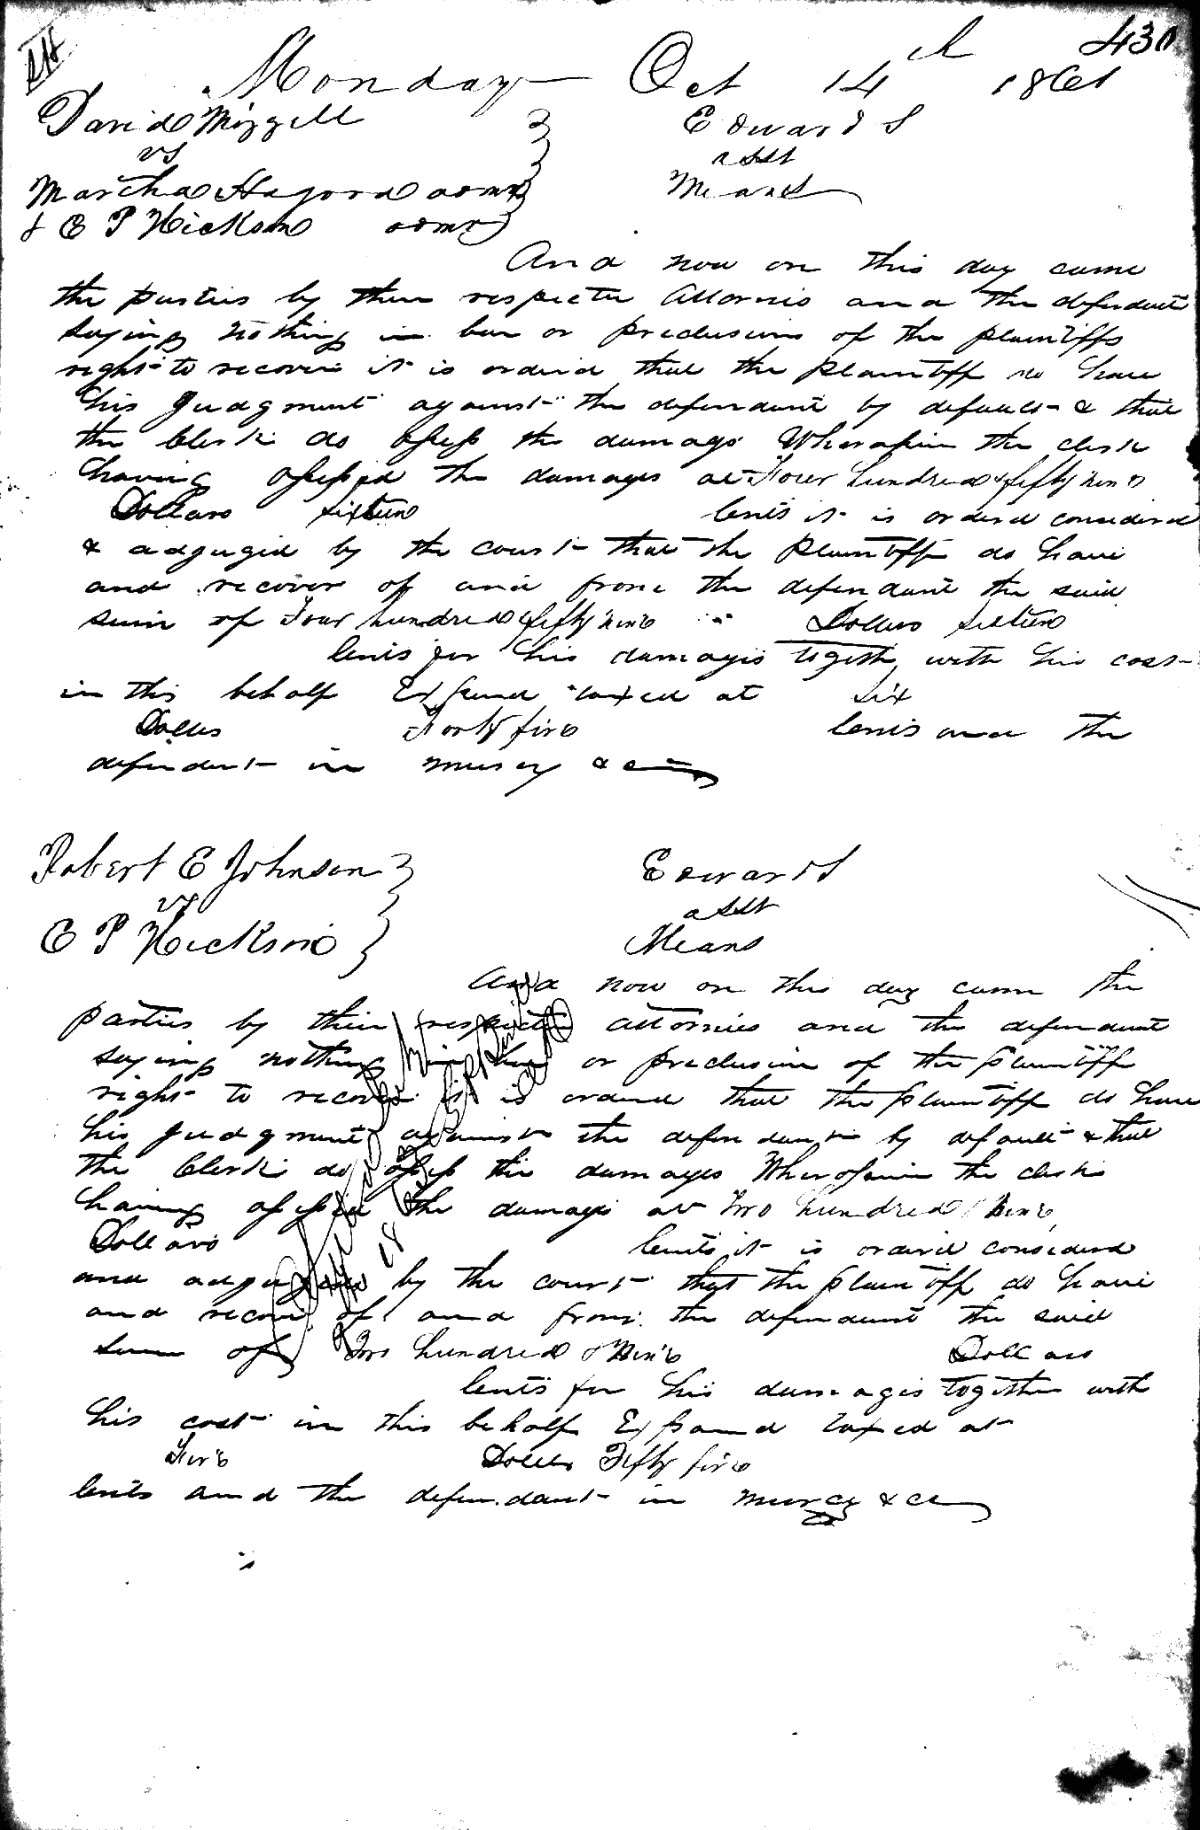 430
Monday Oct 14th 1861
David Mizzell Edwards
vs asst
Martha Hagord admx Means
& E P Hickson admr
And now on this day came
the parties by their respective Attornies and the defendant
saying nothing in bar or preclusion of the plaintiffs
right to recover it is orderd that the plaintiff do have
his Judgment against the defendant by default & that
the Clerk do assess the damage Whereupon the clerk
having assessed the damages at Four hundred & fifty nine
Dollars sixteen Cents it is orderd considered
& adjudgid by the court that the plaintiff do have
and recover of and from the defendant the said
sum of Four hundred & fifty nine Dollars sixteen
Cents for his damages together with his cost
in this behalf Expend taxed at six
Dollars Forty five Cents and the
defendant in mercy &c
Robert E Johnson Edwards
vs asst
E P Hickson Means
And now on this day came the
parties by their respective attornies and the defendant
saying nothing in bar or preclusion of the plaintiff
right to recover it is orderd that the plaintiff do have
his judgment against the defendant by default & that
the Clerk do assess the damages Whereupon the clerk
having assessed the damages at Two hundred & Nine
Dollars Cents it is orderd considered
and adjudged by the court that the plaintiff do have
and recover of and from the defendant the said
sum of Two hundred & Nine Dollars
Cents for his damages together with
his cost in this behalf Expend taxed at
Five Dollers Fifty five
Cents and the defendant in mercy &c